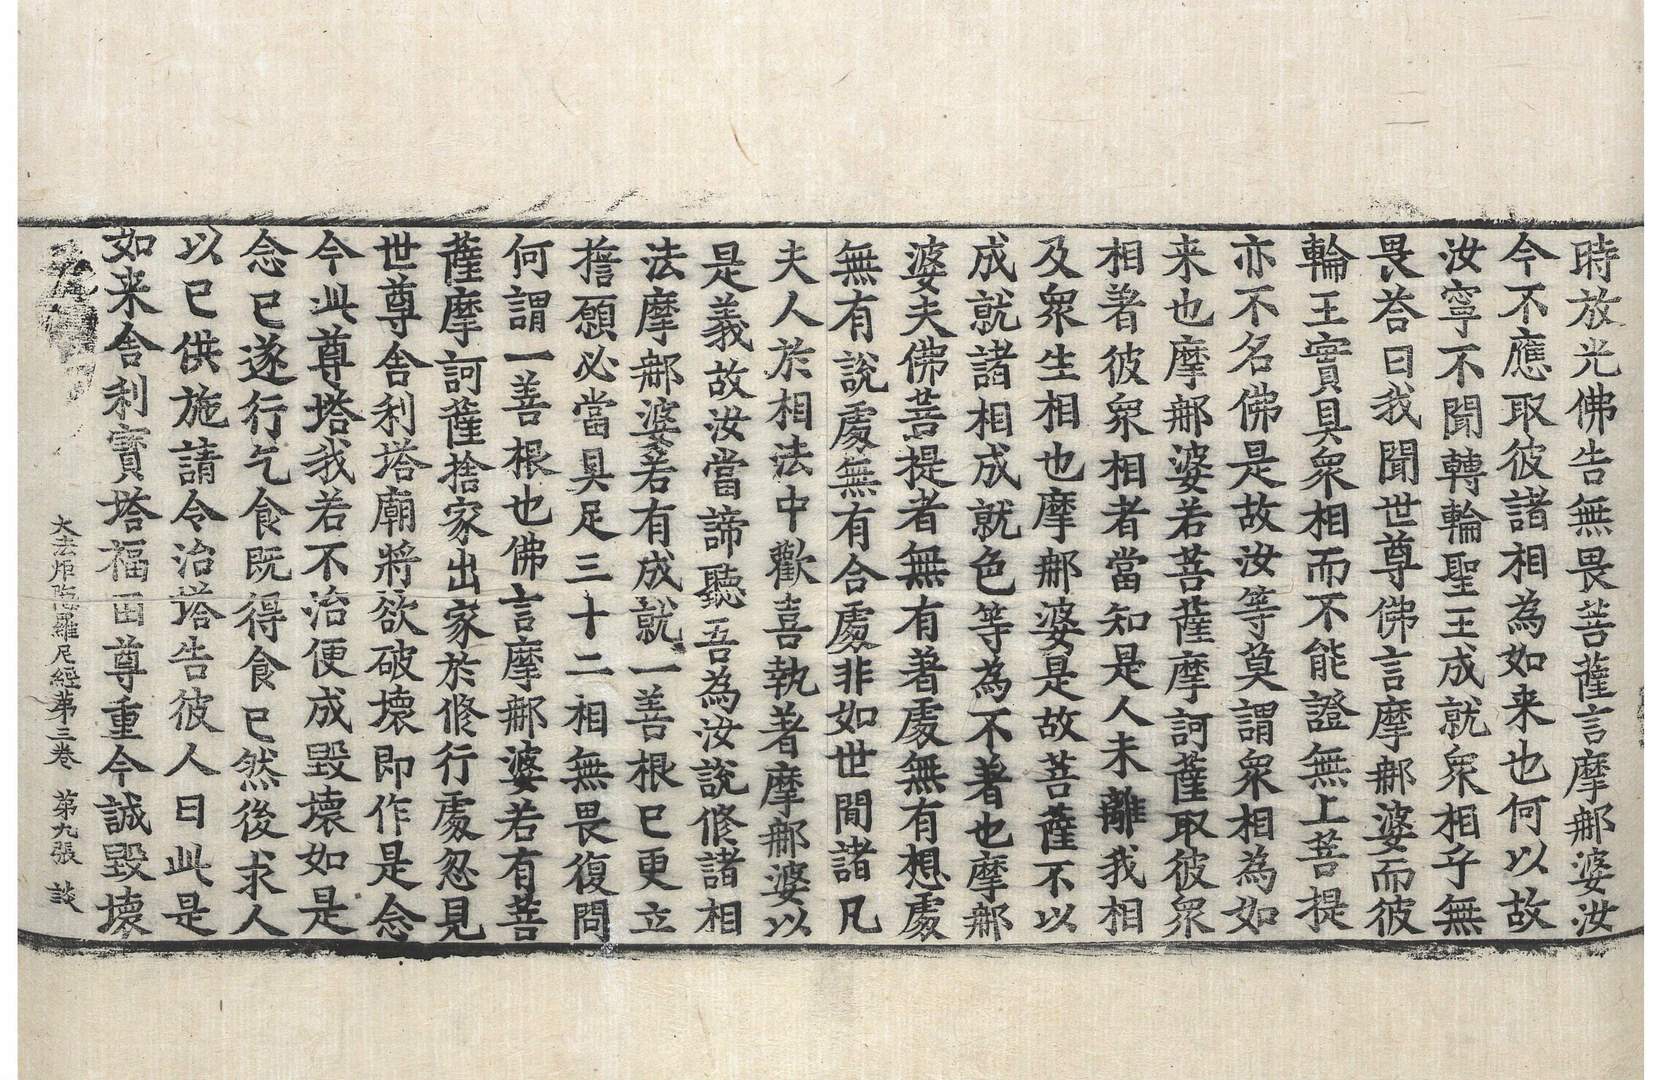 時放光佛告無畏菩薩言摩郍婆汝
今不應取彼諸相為如来也何以故
汝寧不聞轉輪聖王成就衆相乎無
畏荅曰我聞世尊佛言摩郍婆而彼
輪王實具衆相而不能證無上菩提
亦不名佛是故汝等莫謂衆相為如
来也摩郍婆若菩薩摩訶薩取彼衆
相著彼衆相者當知是人未離我相
及衆生相也摩郍婆是故菩薩不以
成就諸相成就色等為不著也摩郍
婆夫佛菩提者無有著處無有想處
無有說處無有合處非如世間諸凡
夫人於相法中歡喜執著摩郍婆以
是義故汝當諦聽吾為汝說修諸相
法摩郍婆若有成就一善根已更立
擔願必當具足三十二相無畏復問
何謂一善根也佛言摩郍婆若有菩
薩摩訶薩捨家出家於修行處忽見
世尊舍利塔廟將欲破壞即作是念
今此尊塔我若不治便成毀壞如是
念已遂行乞食既得食已然後求人
以已供施請令治塔告彼人曰此是
如来舍利寳塔福田尊重今誠毀壞
大法炬陁羅尼經第三卷 第九張 談